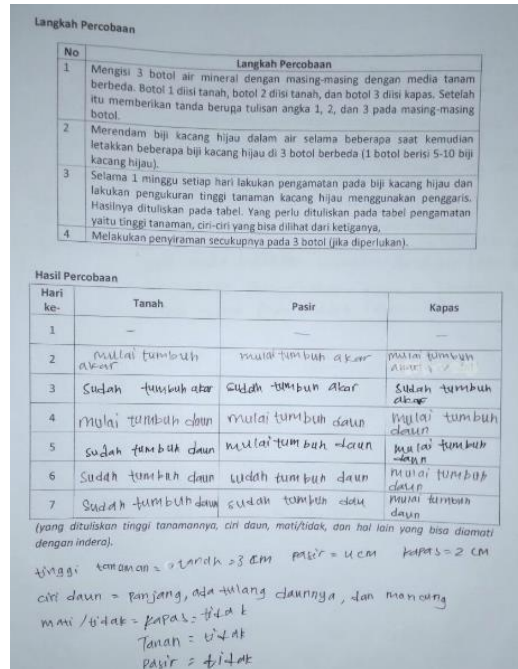 Langkah Percobaan
No Langkah Percobaan
1 Mengisi 3 botol air mineral dengan masing-masing dengan media tanam
berbeda. Botol 1 diisi tanah, botol 2 diisi tanah, dan botol 3 diisi kapas. Setelah
itu memberikan tanda berupa tulisan angka 1, 2, dan 3 pada masing-masing
botol.
2 Merendam biji kacang hijau dalam air selama beberapa saat kemudian
letakkan beberapa biji kacang hijau di 3 botol berbeda (1 botol berisi 5-10 biji
kacang hijau).
3 Selama 1 minggu setiap hari lakukan pengamatan pada biji kacang hijau dan
lakukan pengukuran tinggi tanaman kacang hijau menggunakan penggaris.
Hasilnya dituliskan pada tabel. Yang perlu dituliskan pada tabel pengamatan
yaitu tinggi tanaman, ciri-ciri yang bisa dilihat dari ketiganya,
4 Melakukan penyiraman secukupnya pada 3 botol (jika diperlukan).
Hasil Percobaan
Hari ke- Tanah Pasir Kapas
1 — — —
2 mulai tumbuh akar mulai tumbuh akar mulai tumbuh akar
3 Sudah tumbuh akar sudah tumbuh akar sudah tumbuh akar
4 mulai tumbuh daun mulai tumbuh daun mulai tumbuh daun
5 sudah tumbuh daun mulai tumbuh daun mulai tumbuh daun
6 Sudah tumbuh daun sudah tumbuh daun mulai tumbuh daun
7 Sudah tumbuh daun sudah tumbuh dau mulai tumbuh daun
(yang dituliskan tinggi tanamannya, ciri daun, mati/tidak, dan hal lain yang bisa diamati
dengan indera).
tinggi tanaman = tanah = 3 cm pasir = 4 cm kapas = 2 cm
ciri daun = panjang, ada tulang daunnya, dan mancung
mati / tidak = kapas = tidak
Tanah = tidak
Pasir = tidak